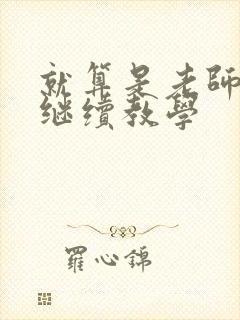 就算是老師
继續教學
羅心錦